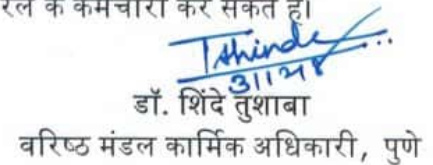 रेल के कर्मचारी कर सकते हैं।
Tshinde
डॉ. शिंदे तुशाबा
वरिष्ठ मंडल कार्मिक अधिकारी, पुणे